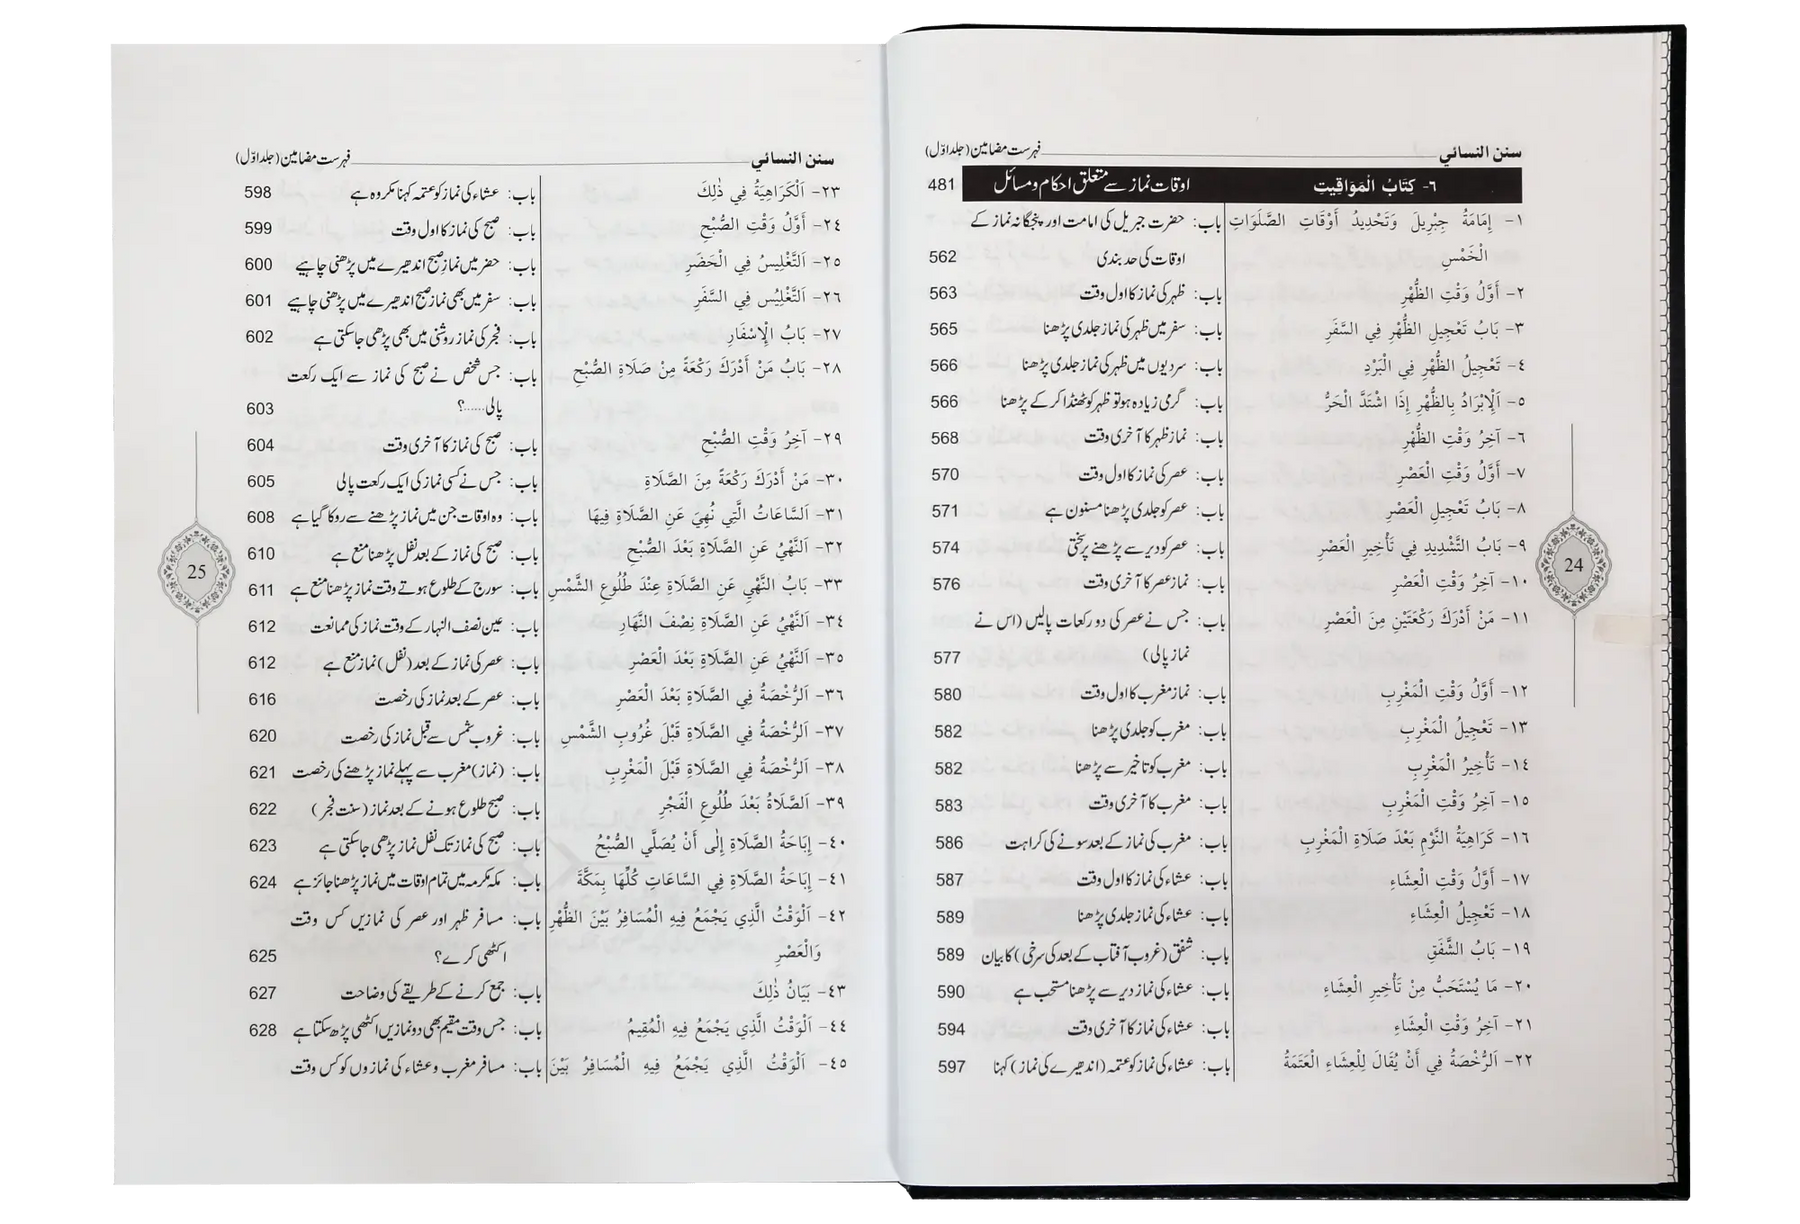 سنن النسائي ـــــ فہرست مضامین (جلد اوّل)
٦- كِتَابُ الْمَوَاقِيتِ اوقات نماز سے متعلق احکام و مسائل 481
١- إِمَامَةُ جِبْرِيلَ وَتَحْدِيدُ أَوْقَاتِ الصَّلَوَاتِ باب: حضرت جبریل کی امامت اور پنجگانہ نماز کے
الْخَمْسِ اوقات کی حد بندی 562
٢- أَوَّلُ وَقْتِ الظُّهْرِ باب: ظہر کی نماز کا اول وقت 563
٣- بَابُ تَعْجِيلِ الظُّهْرِ فِي السَّفَرِ باب: سفر میں ظہر کی نماز جلدی پڑھنا 565
٤- تَعْجِيلُ الظُّهْرِ فِي الْبَرْدِ باب: سردیوں میں ظہر کی نماز جلدی پڑھنا 566
٥- اَلْإِبْرَادُ بِالظُّهْرِ إِذَا اشْتَدَّ الْحَرُّ باب: گرمی زیادہ ہو تو ظہر کو ٹھنڈا کر کے پڑھنا 566
٦- آخِرُ وَقْتِ الظُّهْرِ باب: نماز ظہر کا آخری وقت 568
٧- أَوَّلُ وَقْتِ الْعَصْرِ باب: عصر کی نماز کا اول وقت 570
٨- بَابُ تَعْجِيلِ الْعَصْرِ باب: عصر کو جلدی پڑھنا مسنون ہے 571
٩- بَابُ التَّشْدِيدِ فِي تَأْخِيرِ الْعَصْرِ باب: عصر کو دیر سے پڑھنے پر سختی 574
١٠- آخِرُ وَقْتِ الْعَصْرِ باب: نماز عصر کا آخری وقت 576
١١- مَنْ أَدْرَكَ رَكْعَتَيْنِ مِنَ الْعَصْرِ باب: جس نے عصر کی دو رکعات پالیں (اس نے
نماز پالی) 577
١٢- أَوَّلُ وَقْتِ الْمَغْرِبِ باب: نماز مغرب کا اول وقت 580
١٣- تَعْجِيلُ الْمَغْرِبِ باب: مغرب کو جلدی پڑھنا 582
١٤- تَأْخِيرُ الْمَغْرِبِ باب: مغرب کو تاخیر سے پڑھنا 582
١٥- آخِرُ وَقْتِ الْمَغْرِبِ باب: مغرب کا آخری وقت 583
١٦- كَرَاهِيَةُ النَّوْمِ بَعْدَ صَلَاةِ الْمَغْرِبِ باب: مغرب کی نماز کے بعد سونے کی کراہت 586
١٧- أَوَّلُ وَقْتِ الْعِشَاءِ باب: عشاء کی نماز کا اول وقت 587
١٨- تَعْجِيلُ الْعِشَاءِ باب: عشاء کی نماز جلدی پڑھنا 589
١٩- بَابُ الشَّفَقِ باب: شفق (غروب آفتاب کے بعد کی سرخی) کا بیان 589
٢٠- مَا يُسْتَحَبُّ مِنْ تَأْخِيرِ الْعِشَاءِ باب: عشاء کی نماز دیر سے پڑھنا مستحب ہے 590
٢١- آخِرُ وَقْتِ الْعِشَاءِ باب: عشاء کی نماز کا آخری وقت 594
٢٢- اَلرُّخْصَةُ فِي أَنْ يُقَالَ لِلْعِشَاءِ الْعَتَمَةُ باب: عشاء کی نماز کو عتمہ (اندھیرے کی نماز) کہنا 597
24
سنن النسائي ـــــ فہرست مضامین (جلد اوّل)
٢٣- اَلْكَرَاهِيَةُ فِي ذٰلِكَ باب: عشاء کی نماز کو عتمہ کہنا مکروہ ہے 598
٢٤- أَوَّلُ وَقْتِ الصُّبْحِ باب: صبح کی نماز کا اول وقت 599
٢٥- اَلتَّغْلِيسُ فِي الْحَضَرِ باب: حضر میں نماز صبح اندھیرے میں پڑھنی چاہیے 600
٢٦- اَلتَّغْلِيسُ فِي السَّفَرِ باب: سفر میں بھی نماز صبح اندھیرے میں پڑھنی چاہیے 601
٢٧- بَابُ الْإِسْفَارِ باب: فجر کی نماز روشنی میں بھی پڑھی جا سکتی ہے 602
٢٨- بَابُ مَنْ أَدْرَكَ رَكْعَةً مِنْ صَلَاةِ الصُّبْحِ باب: جس شخص نے صبح کی نماز سے ایک رکعت
پالی......؟ 603
٢٩- آخِرُ وَقْتِ الصُّبْحِ باب: صبح کی نماز کا آخری وقت 604
٣٠- مَنْ أَدْرَكَ رَكْعَةً مِنَ الصَّلَاةِ باب: جس نے کسی نماز کی ایک رکعت پالی 605
٣١- اَلسَّاعَاتُ الَّتِي نُهِيَ عَنِ الصَّلَاةِ فِيهَا باب: وہ اوقات جن میں نماز پڑھنے سے روکا گیا ہے 608
٣٢- اَلنَّهْيُ عَنِ الصَّلَاةِ بَعْدَ الصُّبْحِ باب: صبح کی نماز کے بعد نفل پڑھنا منع ہے 610
٣٣- بَابُ النَّهْيِ عَنِ الصَّلَاةِ عِنْدَ طُلُوعِ الشَّمْسِ باب: سورج کے طلوع ہوتے وقت نماز پڑھنا منع ہے 611
٣٤- اَلنَّهْيُ عَنِ الصَّلَاةِ نِصْفَ النَّهَارِ باب: عین نصف النہار کے وقت نماز کی ممانعت 612
٣٥- اَلنَّهْيُ عَنِ الصَّلَاةِ بَعْدَ الْعَصْرِ باب: عصر کی نماز کے بعد (نفل) نماز منع ہے 612
٣٦- اَلرُّخْصَةُ فِي الصَّلَاةِ بَعْدَ الْعَصْرِ باب: عصر کے بعد نماز کی رخصت 616
٣٧- اَلرُّخْصَةُ فِي الصَّلَاةِ قَبْلَ غُرُوبِ الشَّمْسِ باب: غروب شمس سے قبل نماز کی رخصت 620
٣٨- اَلرُّخْصَةُ فِي الصَّلَاةِ قَبْلَ الْمَغْرِبِ باب: (نماز) مغرب سے پہلے نماز پڑھنے کی رخصت 621
٣٩- اَلصَّلَاةُ بَعْدَ طُلُوعِ الْفَجْرِ باب: صبح طلوع ہونے کے بعد نماز (سنت فجر) 622
٤٠- إِبَاحَةُ الصَّلَاةِ إِلٰى أَنْ يُصَلَّي الصُّبْحُ باب: صبح کی نماز تک نفل نماز پڑھی جا سکتی ہے 623
٤١- إِبَاحَةُ الصَّلَاةِ فِي السَّاعَاتِ كُلِّهَا بِمَكَّةَ باب: مکہ مکرمہ میں تمام اوقات میں نماز پڑھنا جائز ہے 624
٤٢- اَلْوَقْتُ الَّذِي يَجْمَعُ فِيهِ الْمُسَافِرُ بَيْنَ الظُّهْرِ باب: مسافر ظہر اور عصر کی نمازیں کس وقت
وَالْعَصْرِ اکٹھی کرے؟ 625
٤٣- بَيَانُ ذٰلِكَ باب: جمع کرنے کے طریقے کی وضاحت 627
٤٤- اَلْوَقْتُ الَّذِي يَجْمَعُ فِيهِ الْمُقِيمُ باب: جس وقت مقیم بھی دو نمازیں اکٹھی پڑھ سکتا ہے 628
٤٥- اَلْوَقْتُ الَّذِي يَجْمَعُ فِيهِ الْمُسَافِرُ بَيْنَ باب: مسافر مغرب و عشاء کی نمازوں کو کس وقت
25